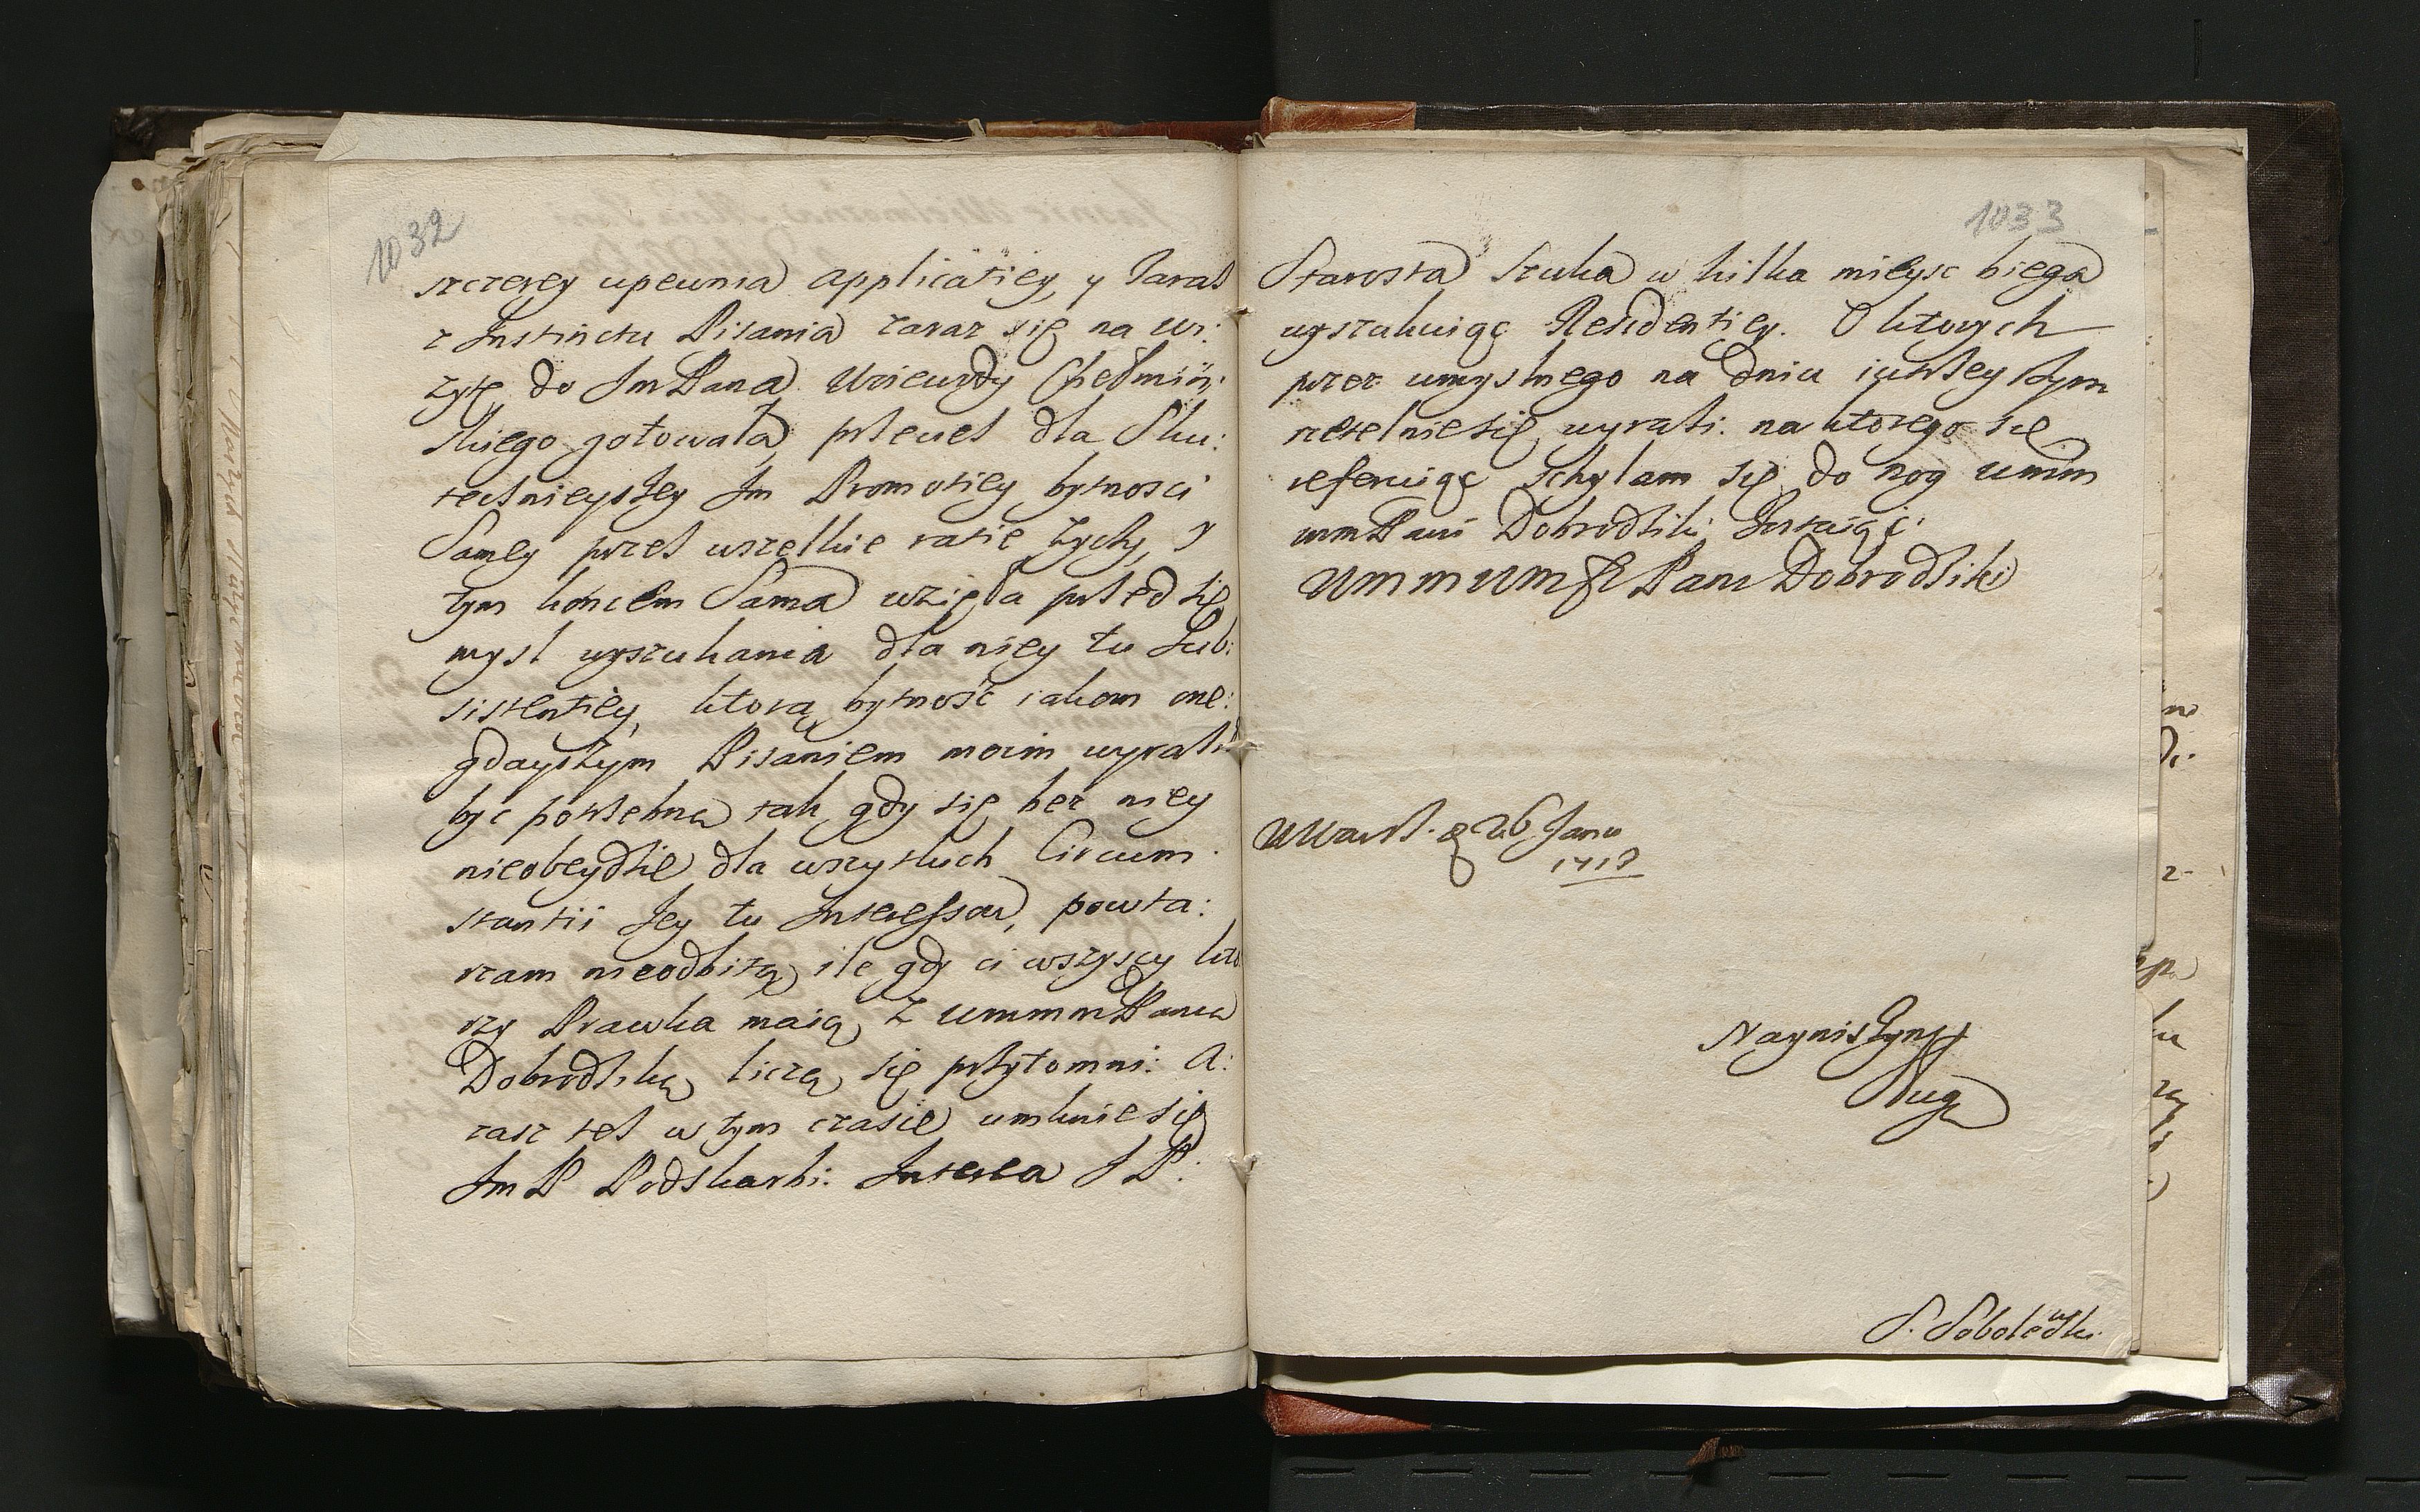 1032
szczerey upewnia applicatiey, y Zaraz
z Instinctu Pisania zaraz się na wi:
zytę do Jm Pana Woiewody Chełmiń:
skiego gotowała, przecież dla Sku:
tecznieyszey Jm Promotiey bytnosci
Samey przez wszelkie racie życzy, y
tym końcem Sama wzięła przed się
mysl wyszukania dla niey tu Sub:
sistentiey, ktorą bytność iakom one:
gdayszym Pisaniem moim wyraził
być potrzebna tak gdy się bez niey
nieobeydzie dla wszystkich Circum:
stantii Jey tu Interessow, powta:
rzam nieodbitą, ile gdy ci wszyscy kto
rzy Prawka maią z Wmmm Panią
Dobrodziką, liczą się przytomni: A:
zasz też w tym czasie umknie się
Jm P Podskarbi: Interea J P:
1033
Starosta Szuka w kilka mieysc biega
wyszukuiąc Residentiey. O ktorych
przez umyslnego na dniu iutrzeyszym
rzetelnie się wyrazi: na ktorego się
referuiąc schylam się do nog Wmm
wm Pani Dobrodziki Zostaiąc
Wmm Wm Pani Dobrodziki
W Warsz. 26 Janu
1718
Nayniszszym
Sługą
S. Sobolewski